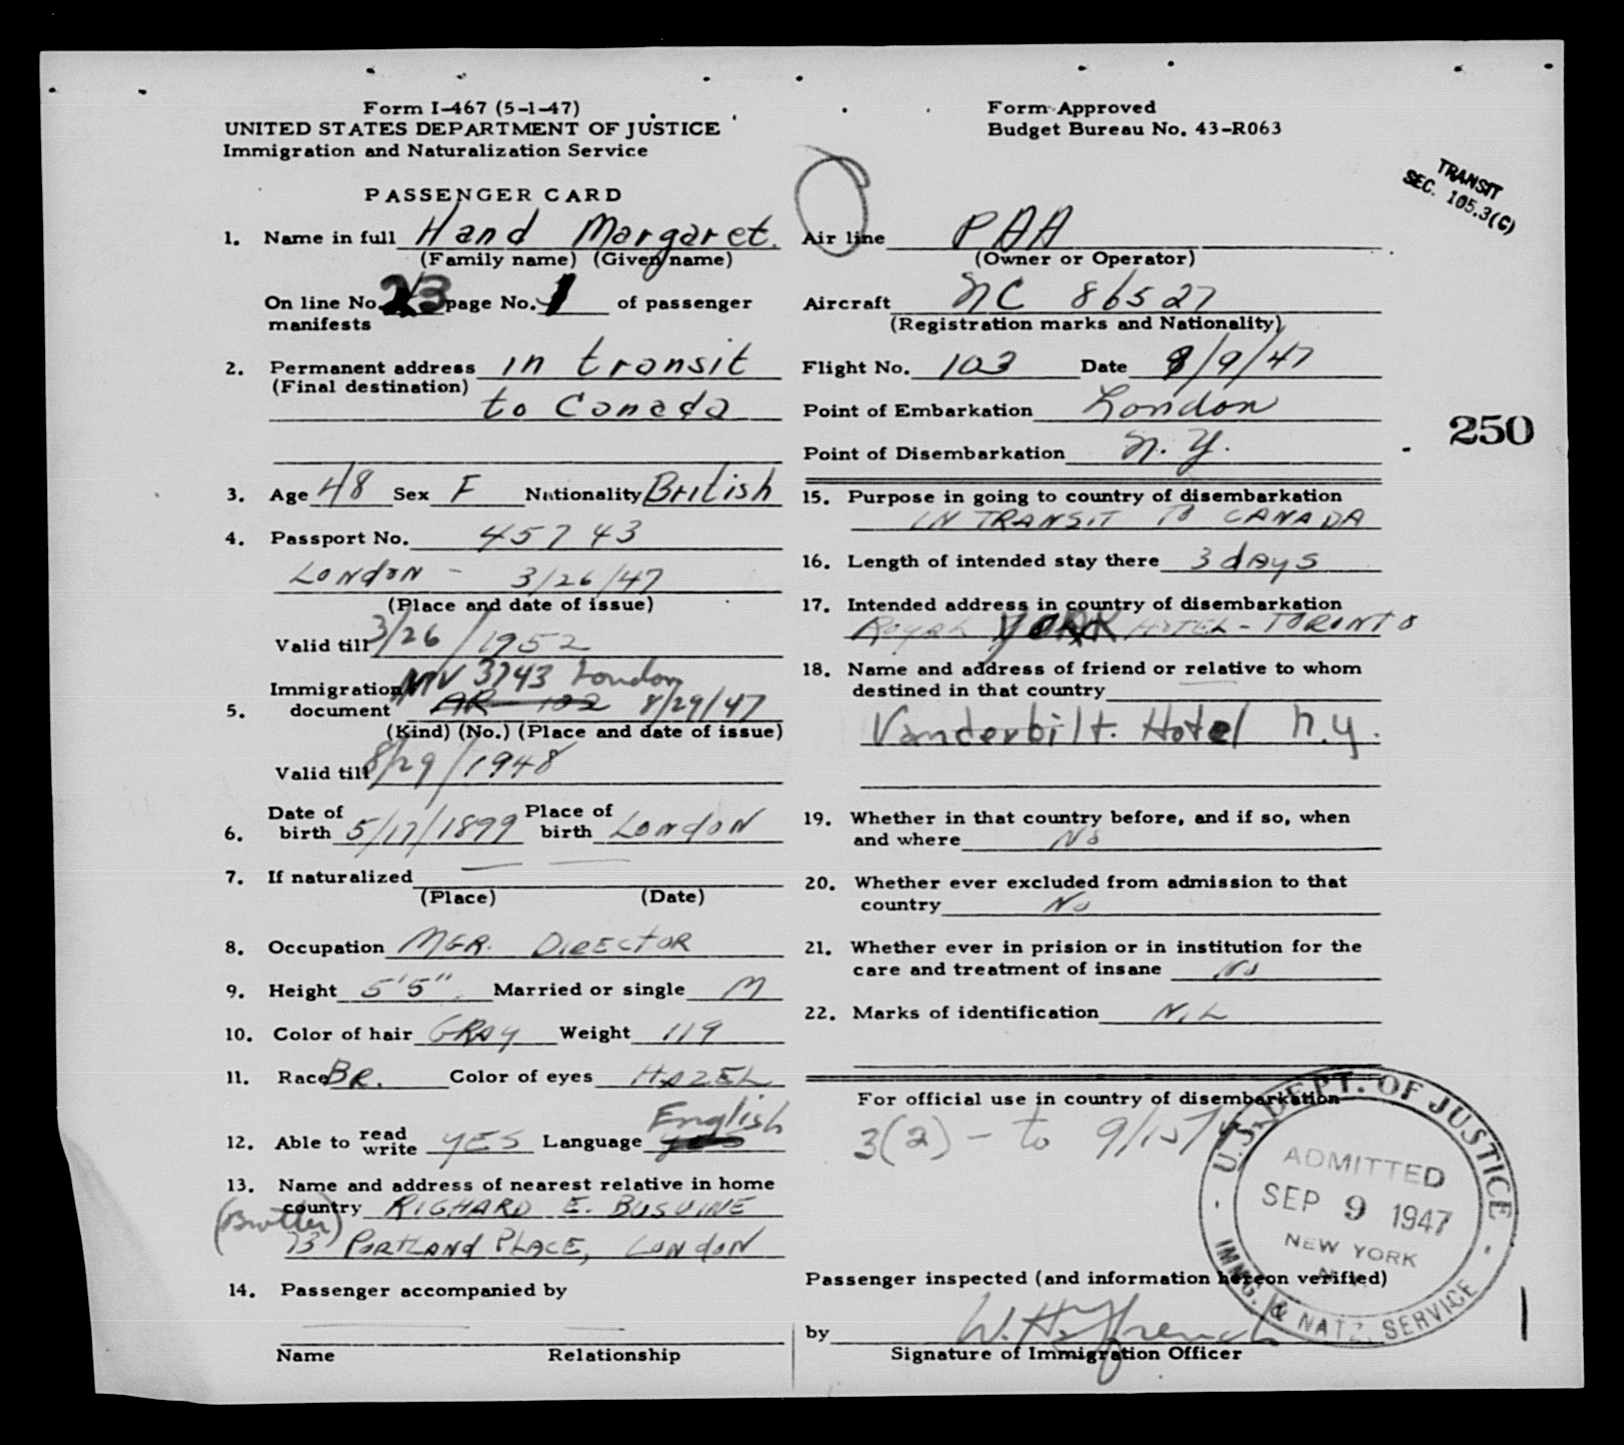 Form I-467 (5-1-47)
UNITED STATES DEPARTMENT OF JUSTICE
Immigration and Naturalization Service
PASSENGER CARD
1. Name in full Hand Margaret.
(Family name) (Given name)
On line No. 23 page No. 1 of passenger
manifests
2. Permanent address in transit
(Final destination)
to Canada
3. Age 48 Sex F Nationality British
4. Passport No. 45743
LONDON - 3/26/47
(Place and date of issue)
Valid till 3/26/1952
NIV 3743 London
Immigration
5. document AR 102 8/29/47
(Kind) (No.) (Place and date of issue)
Valid till 8/29/1948
Date of Place of
6. birth 5/17/1899 birth LONDON
7. If naturalized
(Place) (Date)
8. Occupation MGR. DIRECTOR
9. Height 5'5" Married or single M
10. Color of hair GRAY Weight 119
11. Race BR. Color of eyes HAZEL
English
12. Able to read write YES Language
13. Name and address of nearest relative in home
country RICHARD E. BUSVINE
(Brother)
73 PORTLAND PLACE, LONDON
14. Passenger accompanied by
Name Relationship
Form Approved
Budget Bureau No. 43-R063
TRANSIT
SEC. 105.3(C)
Air line PAA
(Owner or Operator)
Aircraft NC 86527
(Registration marks and Nationality)
Flight No. 103 Date 9/9/47
Point of Embarkation London
Point of Disembarkation N.Y.
250
15. Purpose in going to country of disembarkation
IN TRANSIT TO CANADA
16. Length of intended stay there 3 days
17. Intended address in country of disembarkation
ROYAL YORK HOTEL - TORONTO
18. Name and address of friend or relative to whom
destined in that country
Vanderbilt. Hotel N.Y.
19. Whether in that country before, and if so, when
and where NO
20. Whether ever excluded from admission to that
country NO
21. Whether ever in prision or in institution for the
care and treatment of insane NO
22. Marks of identification NIL
For official use in country of disembarkation
3(2) - to 9/15/
U.S. DEPT. OF JUSTICE
ADMITTED
SEP 9 1947
NEW YORK
IMMG. & NATZ. SERVICE
Passenger inspected (and information hereon verified)
by
Signature of Immigration Officer